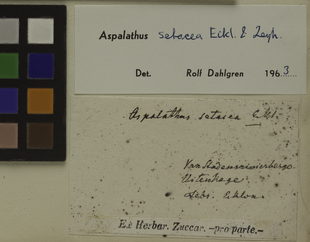 Aspalathus setacea Eckl. & Zeyh.
Det. Rolf Dahlgren 1963
Aspalathus setacea Eckl.
Vanstadensrivierberge
Uitenhage
Ex Herbar. Zuccar. —pro parte.—